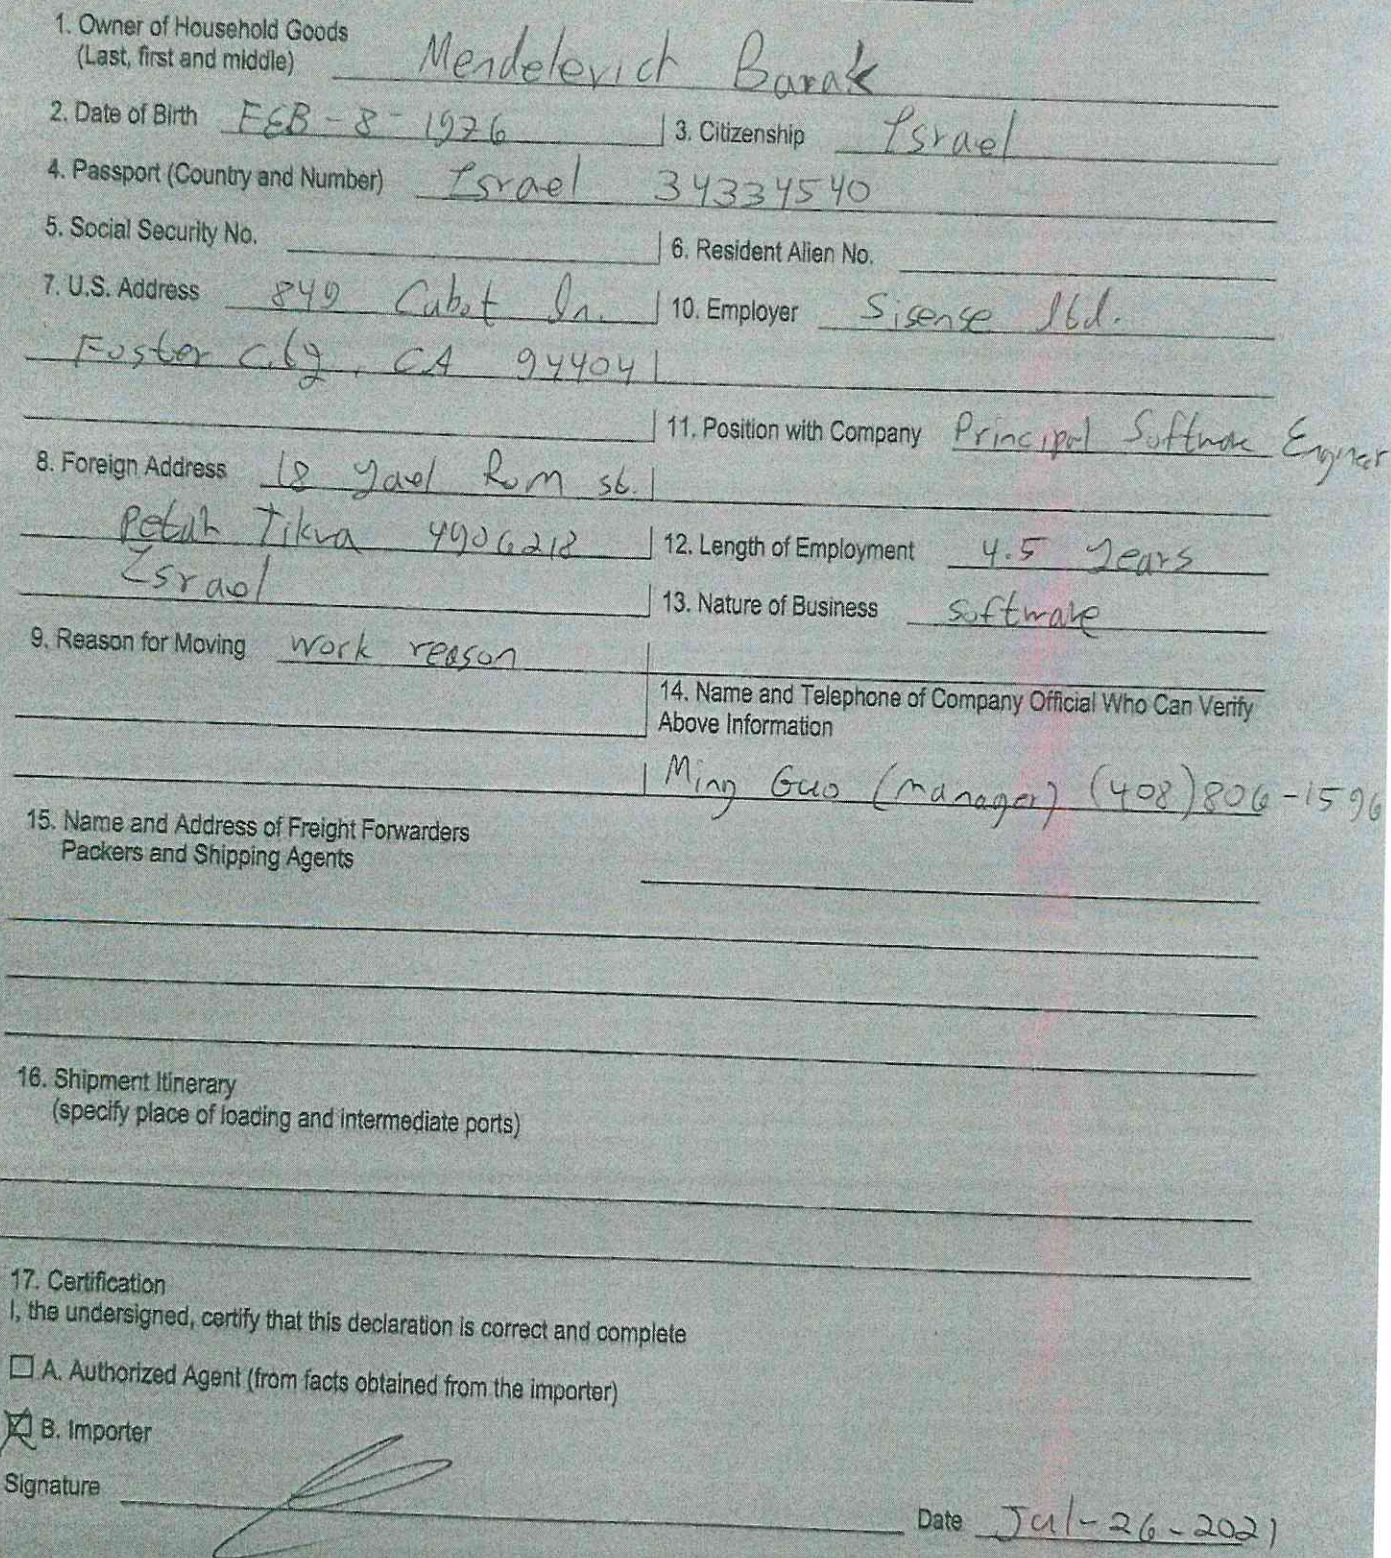 1. Owner of Household Goods
(Last, first and middle) Mendelevich Barak
2. Date of Birth FEB-8-1976 3. Citizenship Israel
4. Passport (Country and Number) Israel 34334540
5. Social Security No. 6. Resident Alien No.
7. U.S. Address 849 Cabot ln. 10. Employer Sisense ltd.
Foster City, CA 94404
11. Position with Company Principal Software Engineer
8. Foreign Address 18 Yael Rom st.
Petah Tikva 4906218 12. Length of Employment 4.5 years
Israel 13. Nature of Business software
9. Reason for Moving work reason
14. Name and Telephone of Company Official Who Can Verify
Above Information
Ming Guo (manager) (408)806-1596
15. Name and Address of Freight Forwarders
Packers and Shipping Agents
16. Shipment Itinerary
(specify place of loading and intermediate ports)
17. Certification
I, the undersigned, certify that this declaration is correct and complete
A. Authorized Agent (from facts obtained from the importer)
B. Importer
Signature Date Jul-26-2021